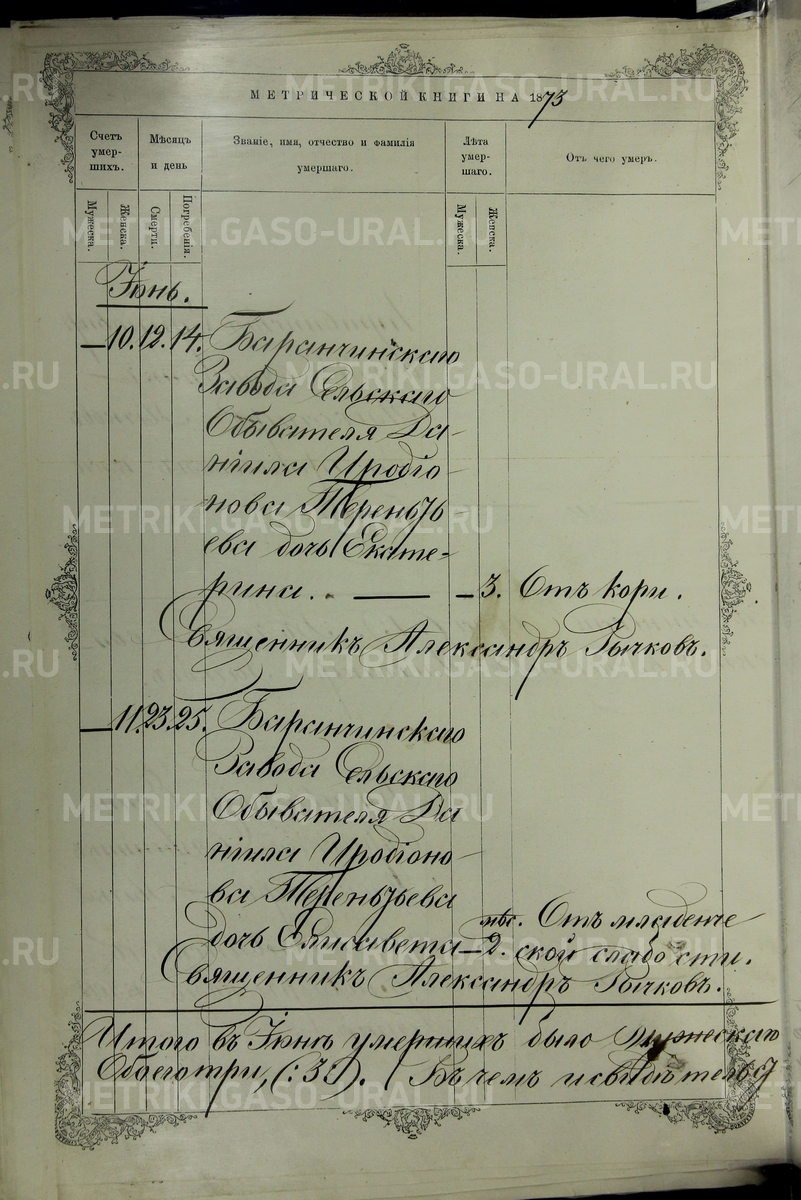 МЕТРИЧЕСКОЙ КНИГИ НА 1873
Счетъ умер-шихъ.
Мѣсяцъ и день
Званіе, имя, отчество и фамилія умершаго.
Лѣта умер-шаго.
Отъ чего умеръ.
Мужеска.
Женска.
Смерти.
Погребенія.
Мужеска.
Женска.
Іюнь.
— 10. 12. 14. Баранчинскаго
Завода Сельскаго
Обывателя Да-
ніила Иродіо-
нова Терентье-
ева дочь Екате-
рина. — — 3. Отъ кори.
Священникъ Александръ Рычковъ.
— 11. 23. 25. Баранчинскаго
Завода Сельскаго
Обывателя Да
ніила Иродіоно-
ва Терентьева
мѣс. Отъ младенче
дочь Елисавета — 2. ской слабости.
Священникъ Александръ Рычковъ.
Итого въ Іюнѣ умершихъ было Мужескаго
Обоего три, (:3:). Въ чемъ и свидѣтельст
METRIKI.GASO-URAL.RU